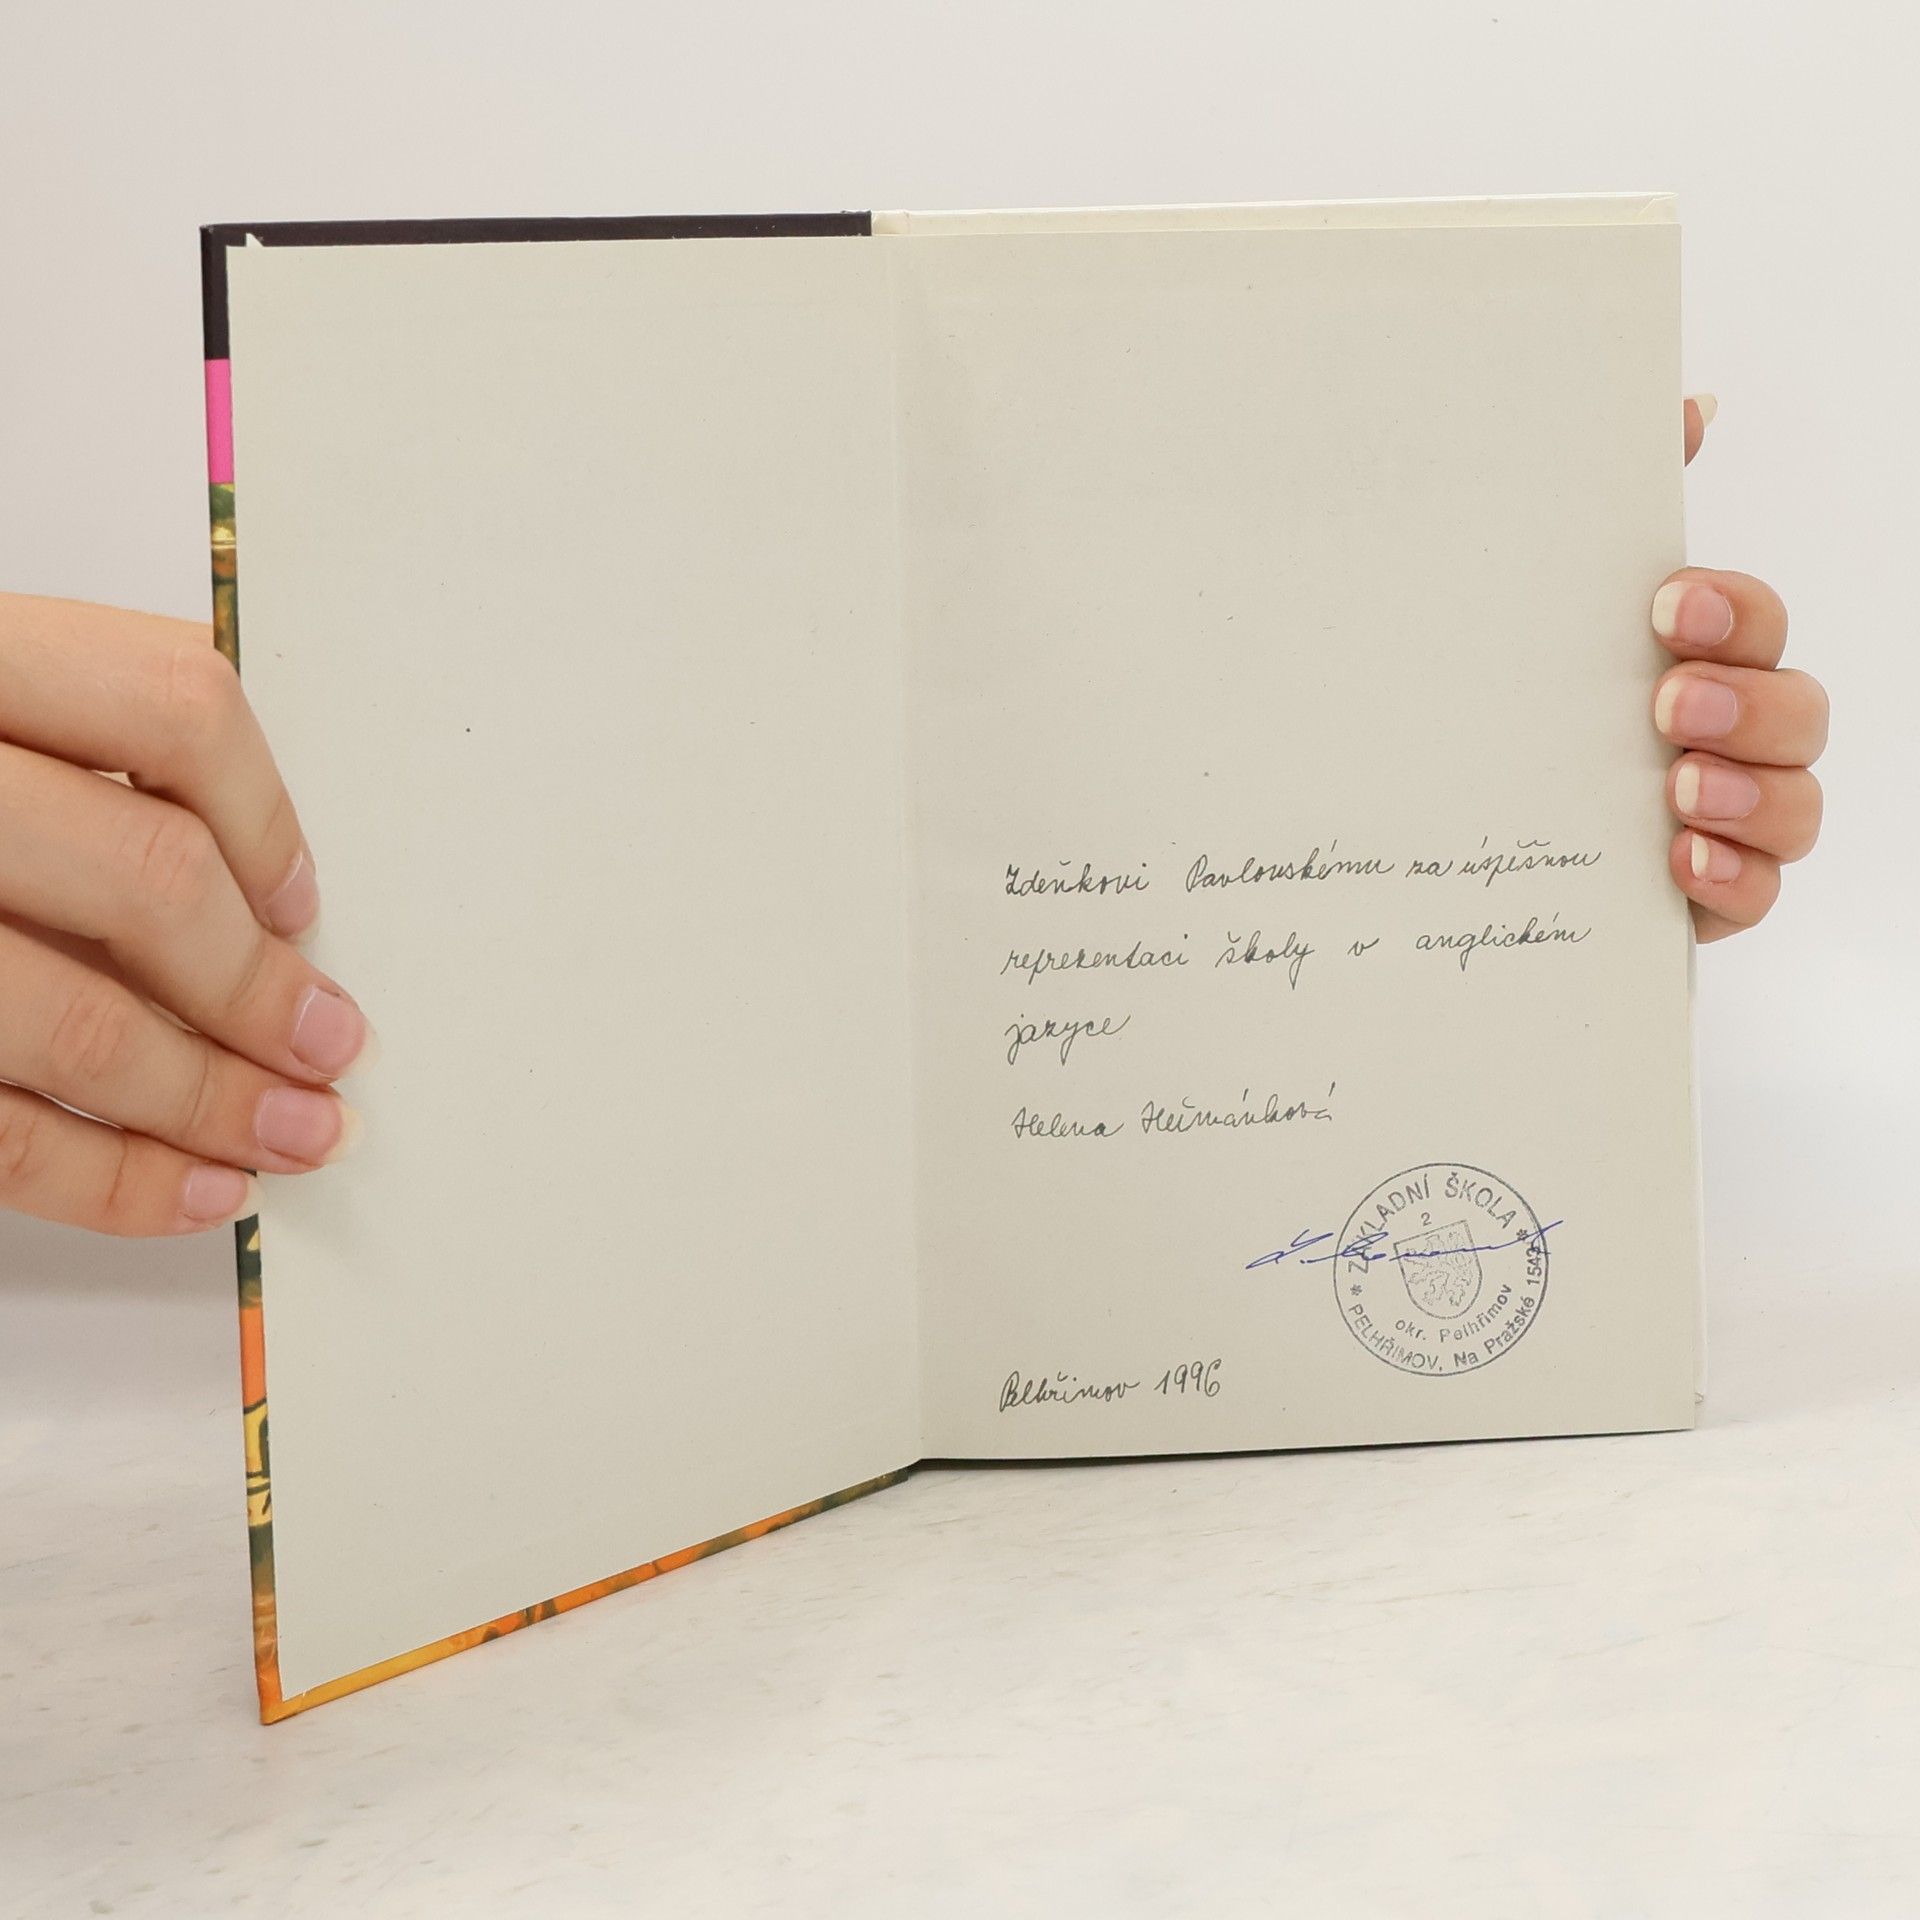 Zdeňkovi Pavlovskému za úspěšnou
reprezentaci školy v anglickém
jazyce
Helena Heřmánková
* ZÁKLADNÍ ŠKOLA *
2
okr. Pelhřimov
PELHŘIMOV, Na Pražské 1543
Pelhřimov 1996